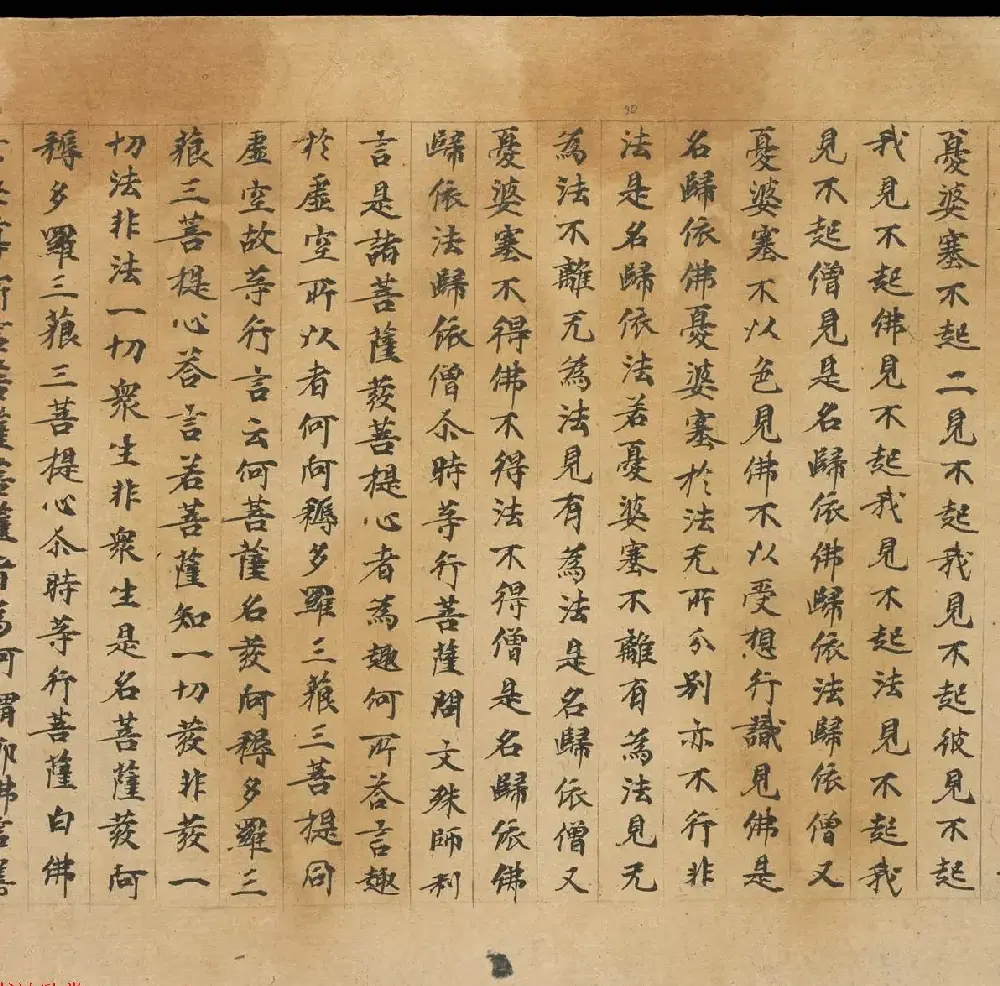 憂婆塞不起二見不起我見不起彼見不起
我見不起佛見不起我見不起法見不起我
見不起僧見是名歸依佛歸依法歸依僧又
憂婆塞不以色見佛不以受想行識見佛是
名歸依佛憂婆塞於法无所分別亦不行非
法是名歸依法若憂婆塞不離有為法見无
為法不離无為法見有為法是名歸依僧又
憂婆塞不得佛不得法不得僧是名歸依佛
歸依法歸依僧尒時等行菩薩問文殊師利
言是諸菩薩發菩提心者為趣何所答言趣
於虛空所以者何阿耨多羅三藐三菩提同
虛空故等行言云何菩薩名發阿耨多羅三
藐三菩提心答言若菩薩知一切發非發一
切法非法一切衆生非衆生是名菩薩發阿
耨多羅三藐三菩提心尒時等行菩薩白佛